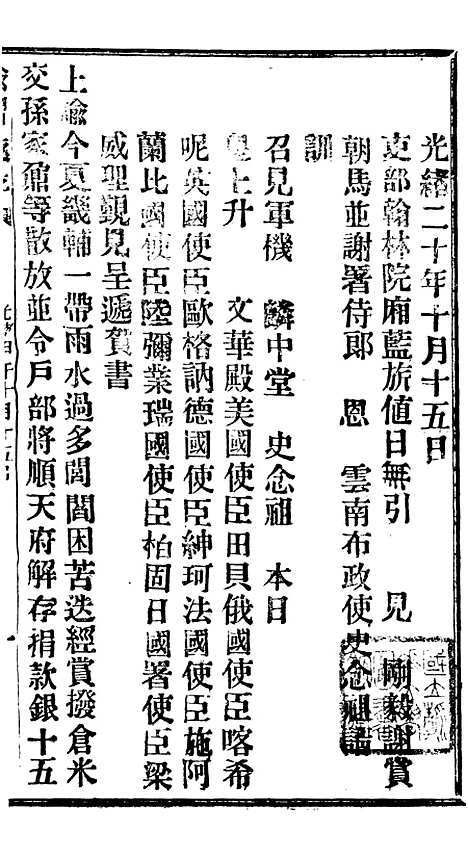 光緒二十年十月十五日
吏部翰林院廂藍旂值日無引 見 剛毅謝賞
朝馬並謝署侍郎 恩 雲南布政使史念祖請
訓
召見軍機 麟中堂 史念祖 本日
皇上升 文華殿美國使臣田貝俄國使臣喀希
呢英國使臣歐格訥德國使臣紳珂法國使臣施阿
蘭比國使臣陸彌業瑞國使臣柏固日國署使臣梁
威理覲見呈遞賀書
上諭今夏畿輔一帶雨水過多閭閻困苦迭經賞撥倉米
交孫家鼐等散放並令戶部將順天府解存捐款銀十五
光緒二十年十月十五日
一